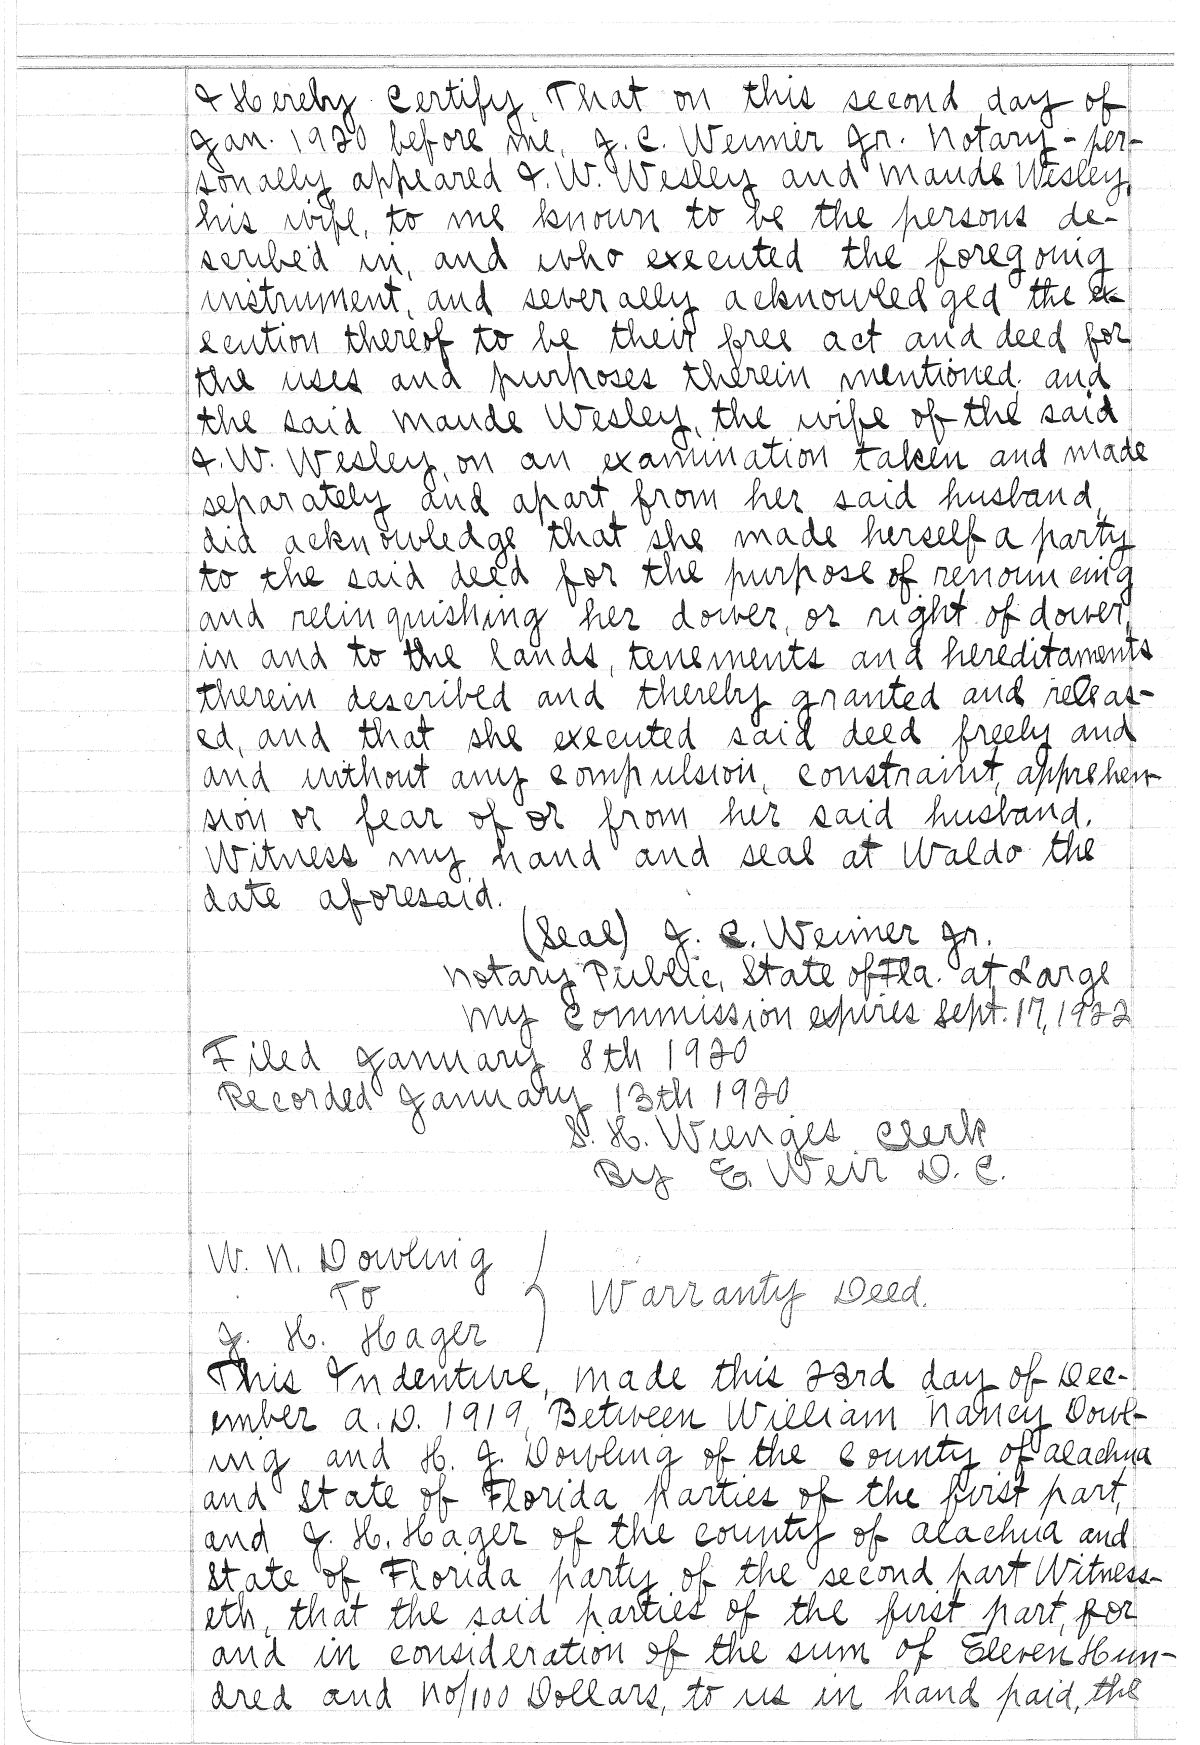 I Hereby Certify, That on this second day of
Jan. 1920 before me, J. C. Weimer Jr. Notary - per-
sonally appeared I. W. Wesley and Maude Wesley,
his wife, to me known to be the persons de-
scribed in, and who executed the foregoing
instrument, and severally acknowledged the ex-
ecution thereof to be their free act and deed for
the uses and purposes therein mentioned; and
the said Maude Wesley, the wife of the said
I. W. Wesley, on an examination taken and made
separately and apart from her said husband,
did acknowledge that she made herself a party
to the said deed for the purpose of renouncing
and relinquishing her dower, or right of dower,
in and to the lands, tenements and hereditaments
therein described and thereby granted and releas-
ed, and that she executed said deed freely and
and without any compulsion, constraint, apprehen-
sion or fear of or from her said husband.
Witness my hand and seal at Waldo the
date aforesaid.
(Seal) J. C. Weimer Jr.
Notary Public, State of Fla. at Large
My Commission expires Sept. 17, 1922
Filed January 8th 1920
Recorded January 13th 1920
S. H. Wienges Clerk
By E. Weir D. C.
W. N. Dowling
To
Warranty Deed.
J. H. Hager
This Indenture, made this 23rd day of Dec-
ember A. D. 1919, Between William Nancy Dowl-
ing and H. J. Dowling of the County of Alachua
and State of Florida parties of the first part,
and J. H. Hager of the county of Alachua and
State of Florida party of the second part Witness-
eth, that the said parties of the first part, for
and in consideration of the sum of Eleven Hun-
dred and No/100 Dollars, to us in hand paid, the